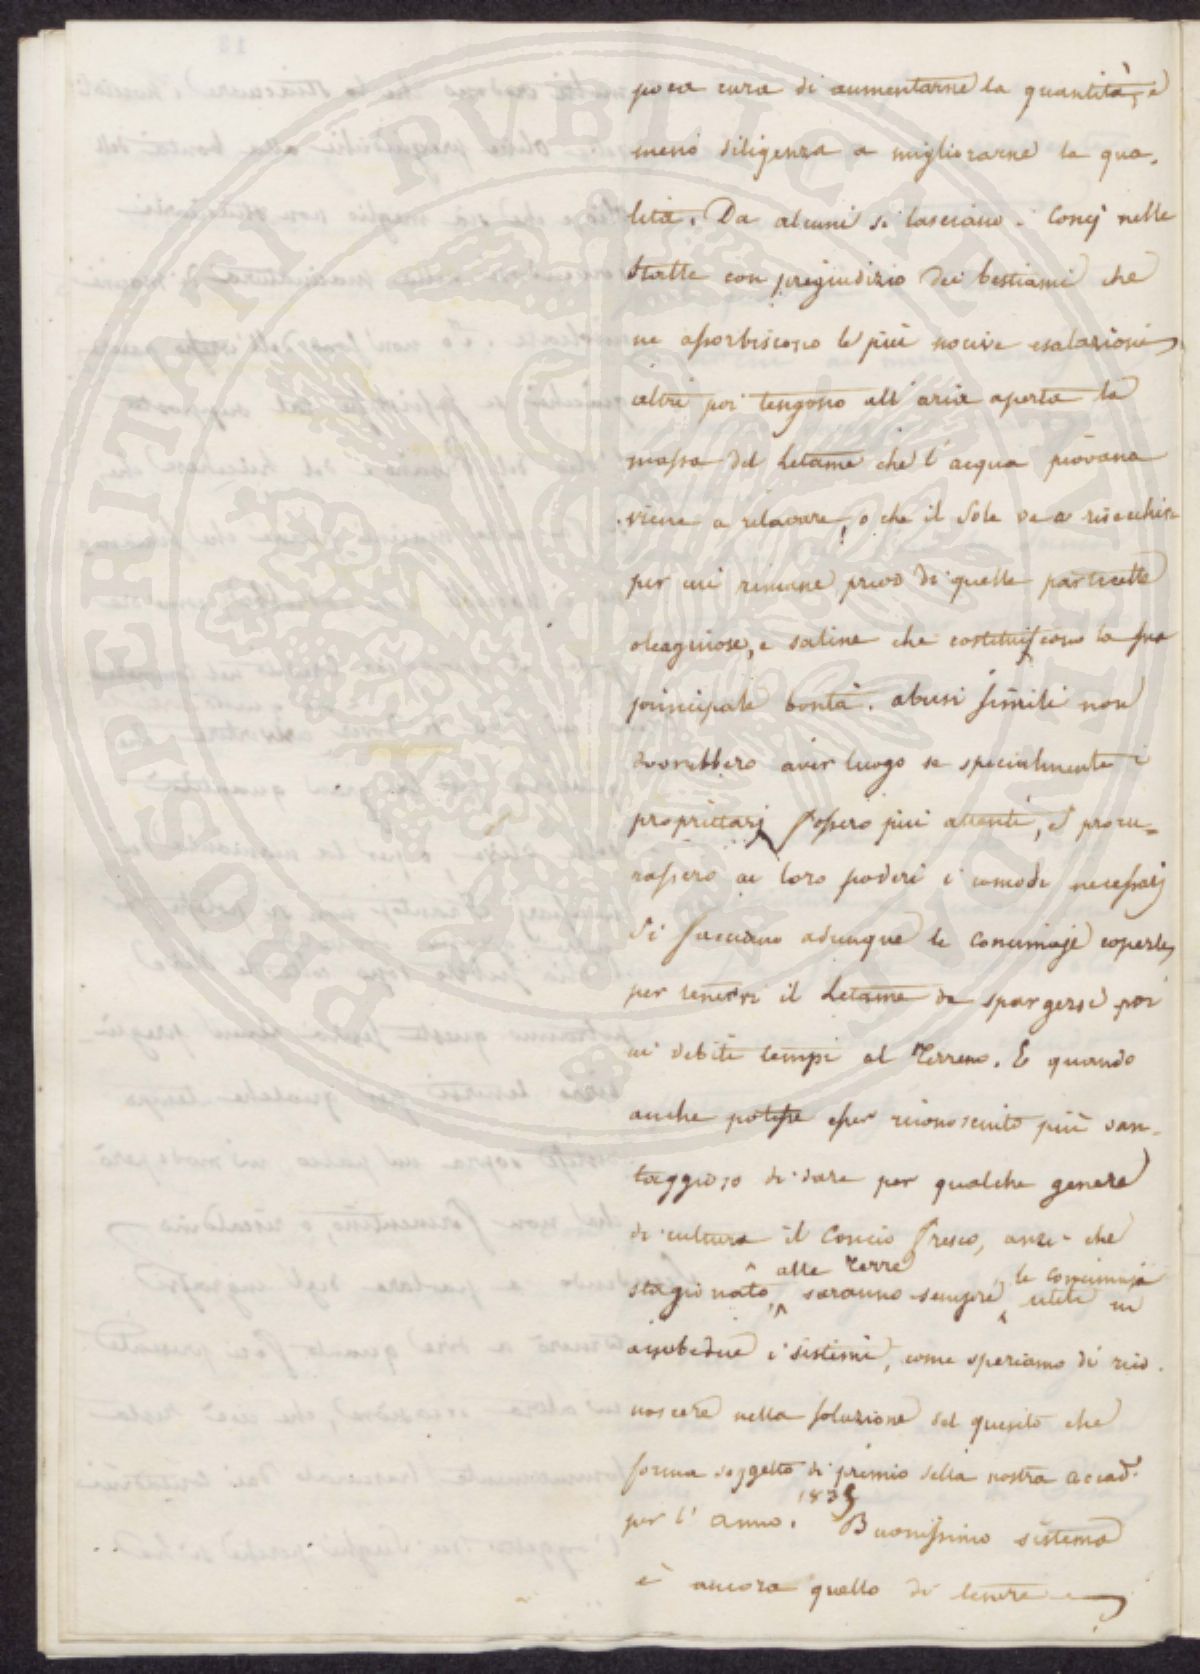 poca cura di aumentarne la quantità, e
meno diligenza a migliorarne la qua-
lità. Da alcuni si lasciano i Concj nelle
Stalle con pregiudizio dei bestiami che
ne assorbiscono le più nocive esalazioni,
altri poi tengono all'aria aperta la
massa del Letame che l'acqua piovana
viene a rilavare, o che il Sole va a risecchire
per cui rimane privo di quelle particelle
oleaginose, e saline che costituiscono la sua
principale bontà. abusi simili non
dovrebbero aver luogo se specialmente i
proprietarj fossero più attenti, e procu-
rassero ai loro poderi i comodi necessarj
Si facciano adunque le concimaje coperte,
per tenervi il Letame da spargersi poi
ai debiti tempi al Terreno. E quando
anche potesse esser riconosciuto più van-
taggioso di dare per qualche genere
di cultura il Concio fresco, anzi che
alle Terre le concimaje
stagionato, saranno sempre utili in
ambedue i sistemi, come speriamo di rico-
noscere nella soluzione del quesito che
forma soggetto di premio della nostra accad.
per l'anno. 1835 Buonissimo sistema
è ancora quello di tenere
PROSPERITATI PVBLICAE AVGENDAE